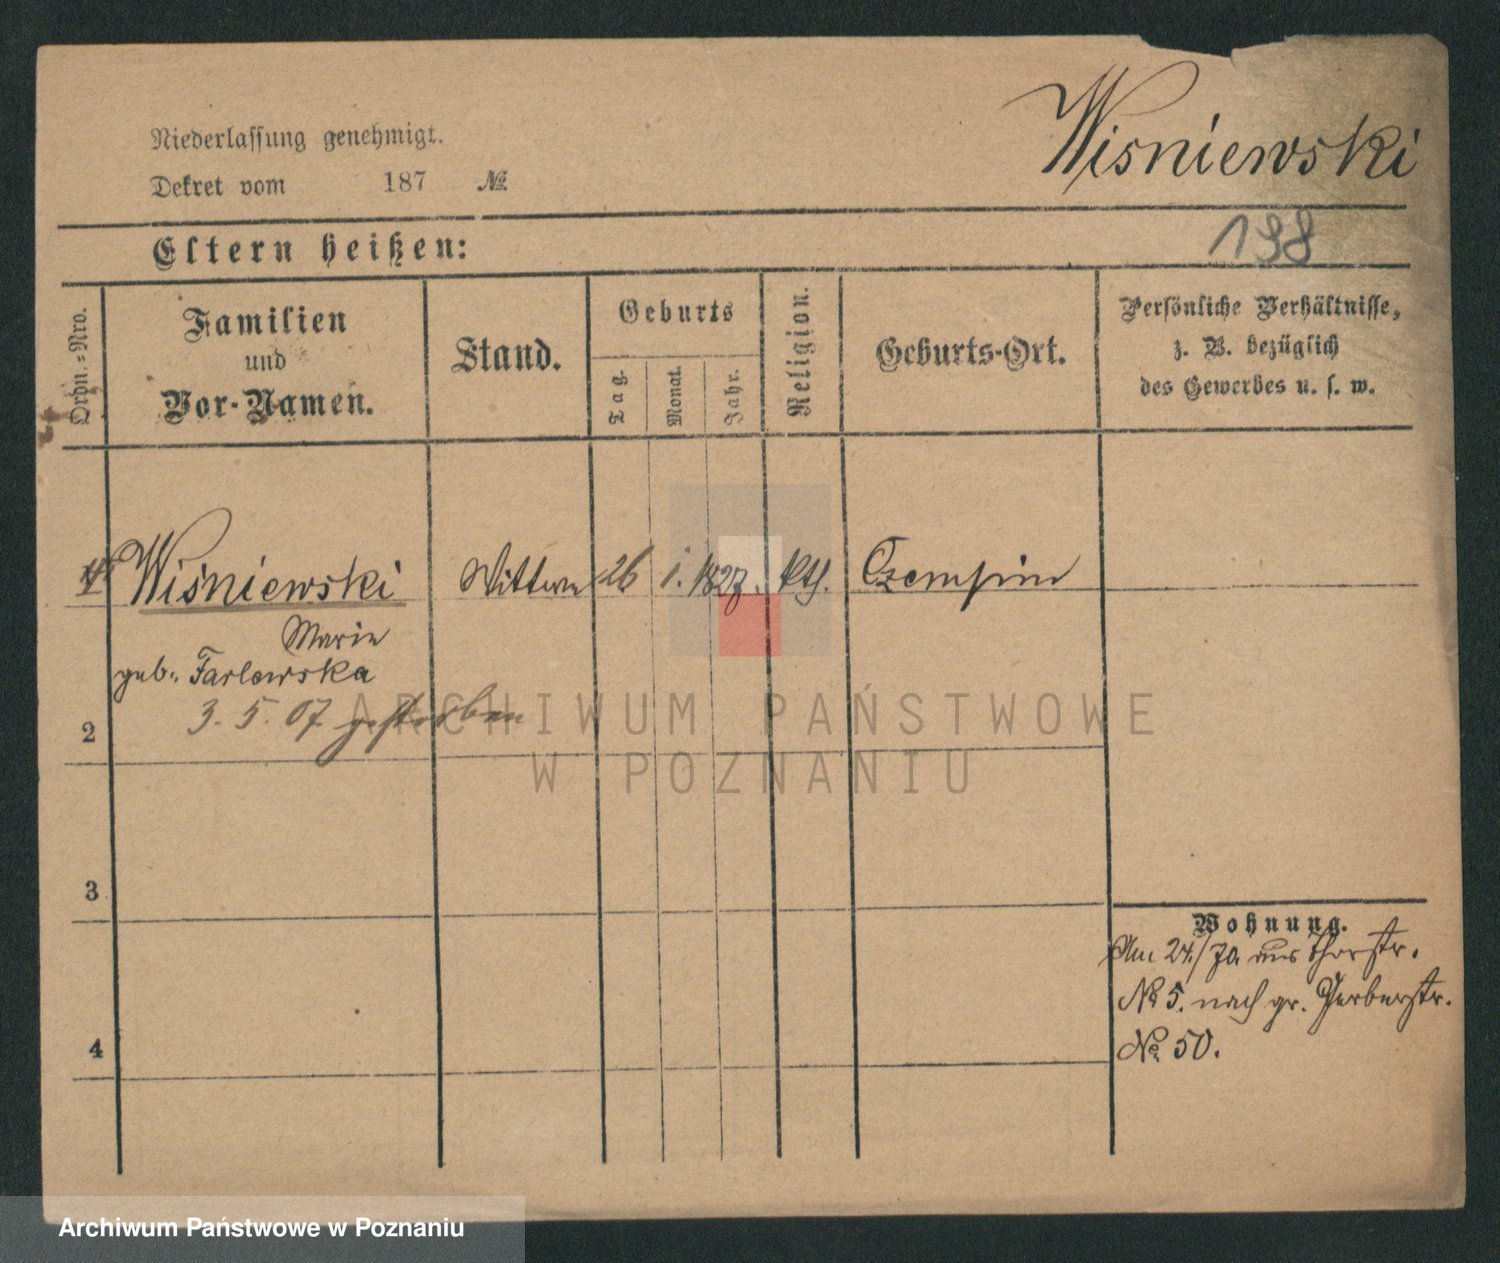 Wisniewski
Niederlassung genehmigt.
Dekret vom 187 №
198
Eltern heißen:
Ordn.-Nro.
Familien
und
Vor-Namen.
Stand.
Geburts
Tag.
Monat.
Jahr.
Religion.
Geburts-Ort.
Persönliche Verhältnisse,
z. B. bezüglich
des Gewerbes u. s. w.
Wiśniewski Wittwe 26 1. 1827. kth. Czempin
Marie
geb. Farlowska
3. 5. 07 gestorben
2
3
4
Wohnung.
Am 24./ aus Thorstr.
№ 5. nach gr. Gerberstr.
№ 50.
ARCHIWUM PAŃSTWOWE
W POZNANIU
Archiwum Państwowe w Poznaniu